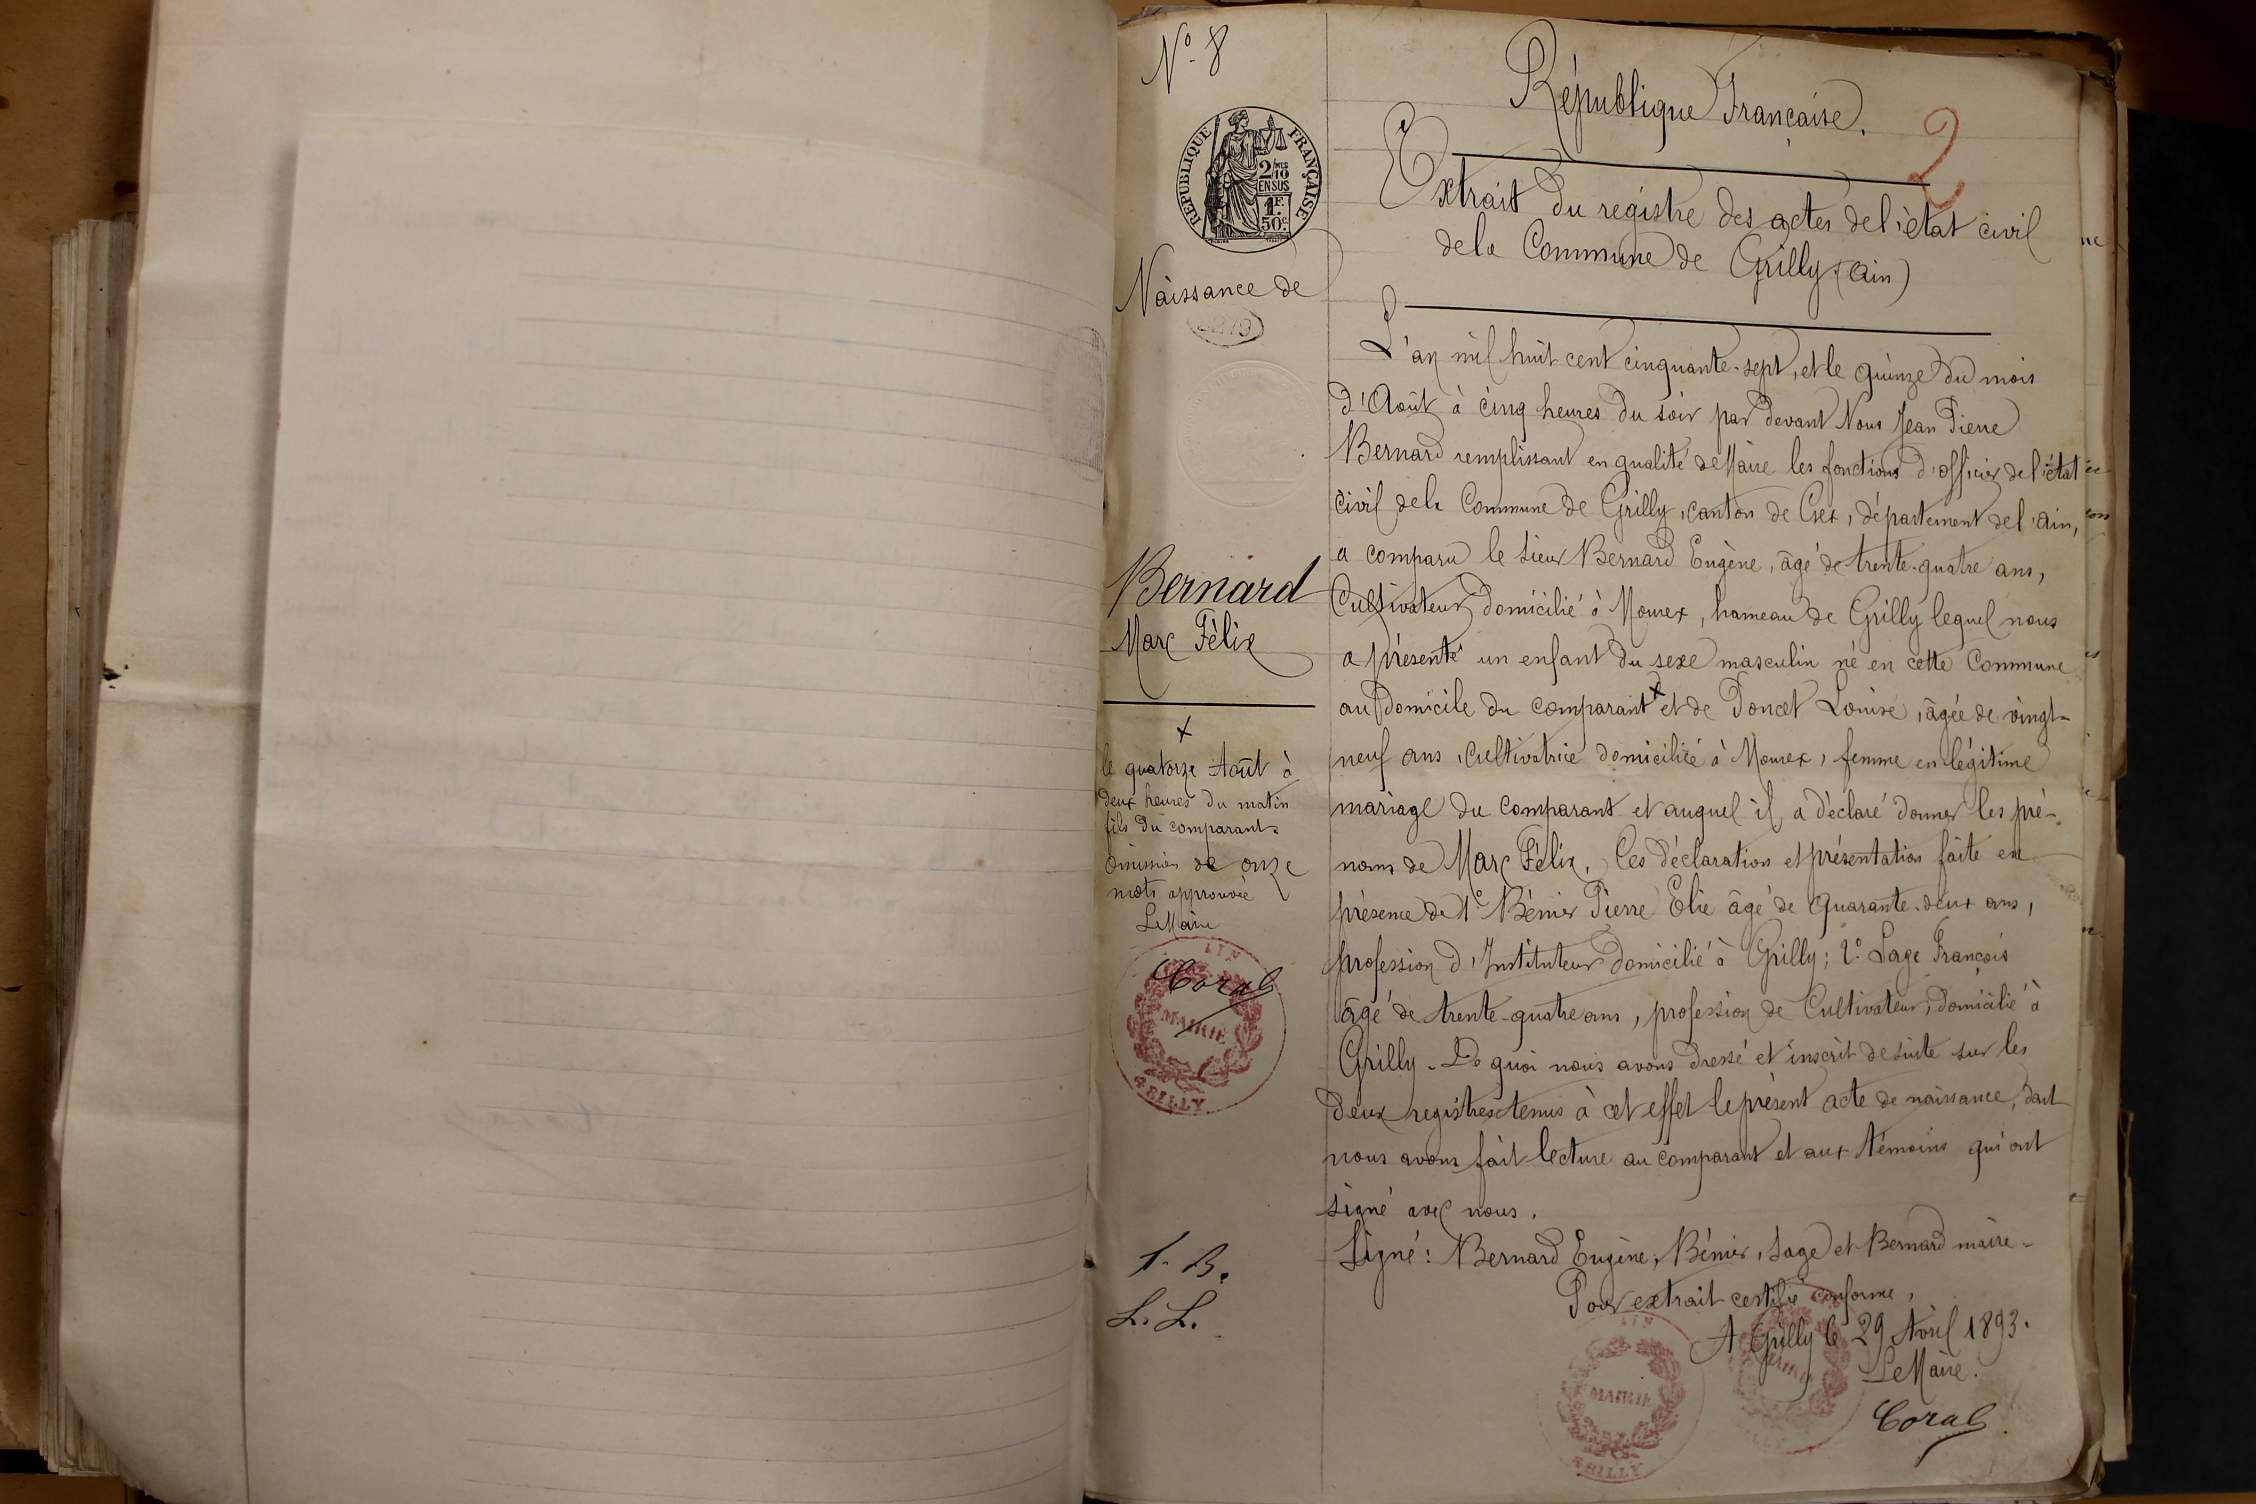 N° 8
RÉPUBLIQUE FRANÇAISE
2/10
EN SUS
1 F.
50 c.
Naissance de
Bernard
Marc Félix
x
le quatorze Août à
deux heures du matin
fils du comparant.
Omission de onze
mots approuvée
Le Maire
Coral
AIN
MAIRIE
GRILLY
J. B.
L. L.
République Française.
2
Extrait du registre des actes de l'état civil
de la Commune de Grilly (Ain)
L'an mil huit cent cinquante-sept, et le quinze du mois
d'Août à cinq heures du soir par devant Nous Jean Pierre
Bernard remplissant en qualité de Maire les fonctions d'officier de l'état
civil de la Commune de Grilly, canton de Gex, département de l'Ain,
a comparu le sieur Bernard Eugène, âgé de trente-quatre ans,
Cultivateur domicilié à Mourex, hameau de Grilly lequel nous
a présenté un enfant du sexe masculin né en cette Commune
au domicile du comparant x et de Poncet Louise, âgée de vingt-
neuf ans, cultivatrice domiciliée à Mourex, femme en légitime
mariage du comparant et auquel il a déclaré donner les pré-
noms de Marc Félix. Ces déclaration et présentation faite en
présence de 1° Bénier Pierre Elie âgé de quarante-deux ans,
profession d'Instituteur domicilié à Grilly; 2° Sage François
âgé de trente-quatre ans, profession de Cultivateur, domicilié à
Grilly. De quoi nous avons dressé et inscrit de suite sur les
deux registres tenus à cet effet le présent acte de naissance, dont
nous avons fait lecture au comparant et aux témoins qui ont
signé avec nous.
Signé: Bernard Eugène, Bénier, Sage et Bernard maire.
Pour extrait certifié conforme,
A Grilly le 29 Avril 1893.
Le Maire.
Coral
AIN
MAIRIE
GRILLY
MAIRIE